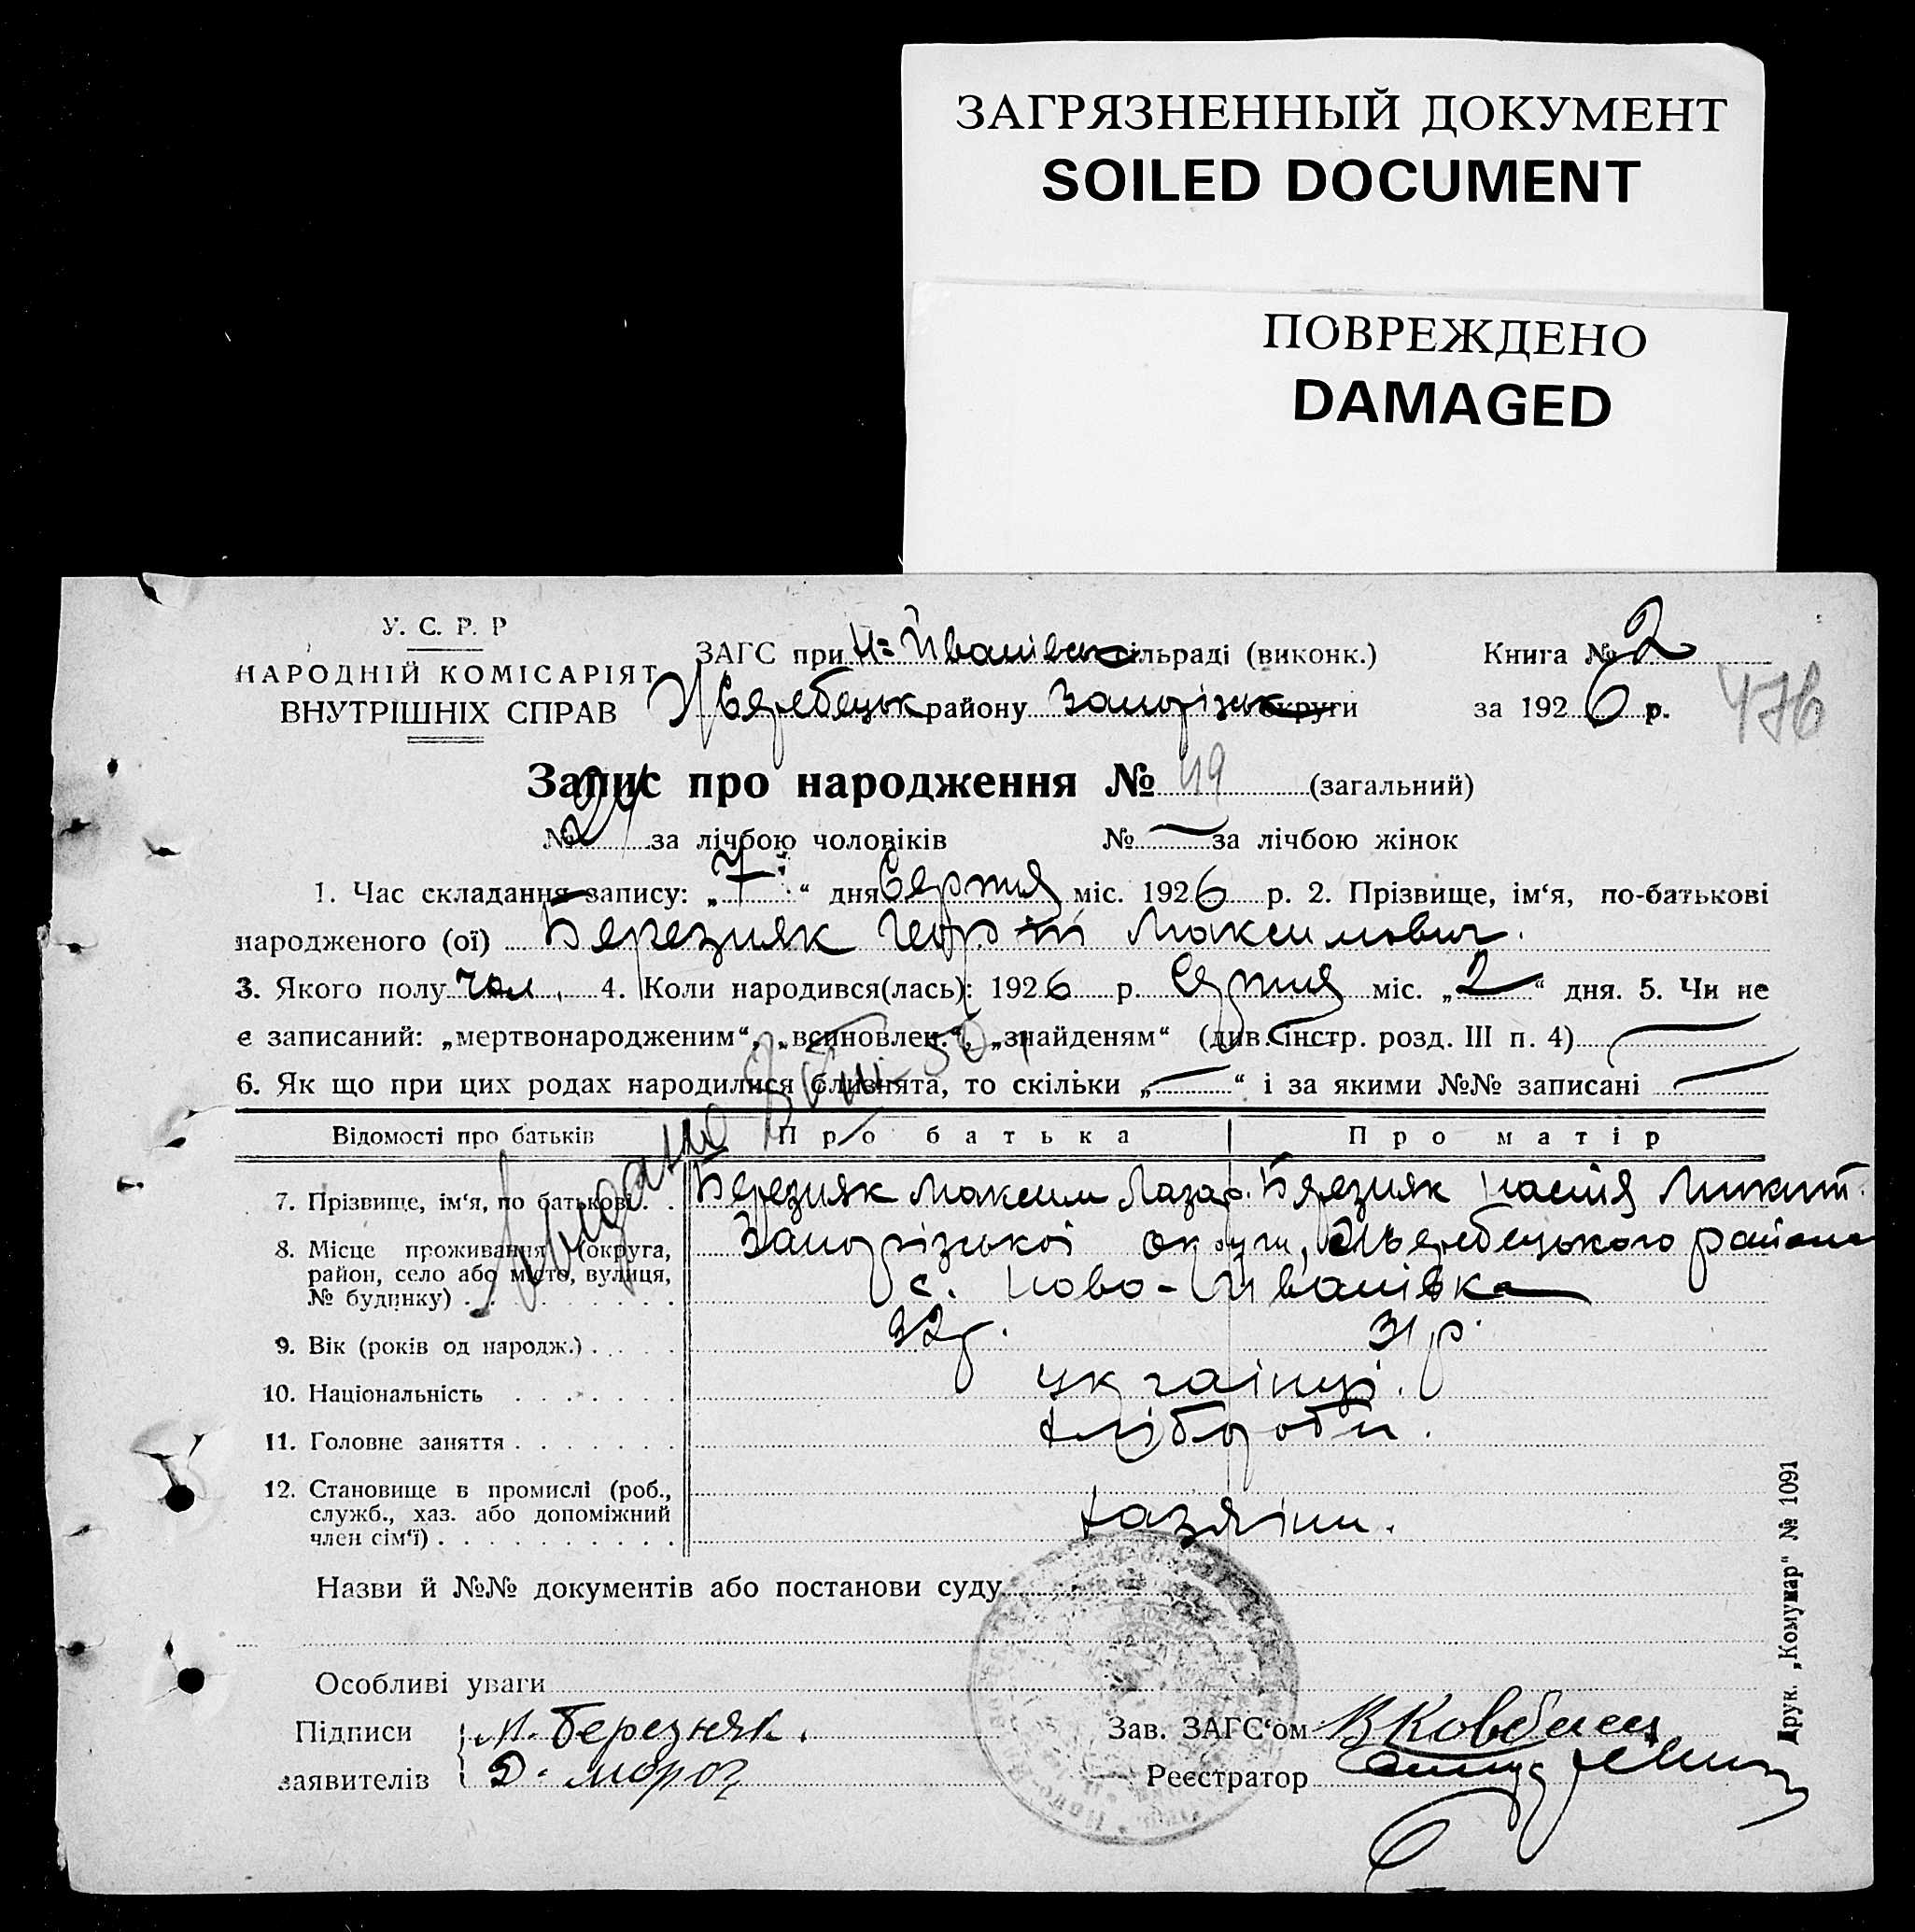 ЗАГРЯЗНЕННЫЙ ДОКУМЕНТ
SOILED DOCUMENT
ПОВРЕЖДЕНО
DAMAGED
У. С. Р. Р
НАРОДНІЙ КОМІСАРІЯТ
ВНУТРІШНІХ СПРАВ
ЗАГС при Н=Йванівськ сільраді (виконк.)
Жеребецьк району Запорізьк округи
Книга № 2
за 1926 р.
476
Запис про народження № 49 (загальний)
№ 24 за лічбою чоловіків № — за лічбою жінок
1. Час складання запису: „7“ дня Серпня міс. 1926 р. 2. Прізвище, ім‘я, по-батькові
народженого (ої) Березняк Георгій Максимович.
3. Якого полу чол. 4. Коли народився(лась): 1926 р. Серпня міс. „2“ дня. 5. Чи не
є записаний: „мертвонародженим“, „всиновлен.“, „знайденям“ (див. інстр. розд. III п. 4) —
6. Як що при цих родах народилися близнята, то скільки „—“ і за якими №№ записані —
Відомості про батьків Про батька Про матір
7. Прізвище, ім‘я, по батькові . . Березняк Максим Лазар. Березняк Настя Микит.
8. Місце проживання (округа, район, село або місто, вулиця, № будинку) . . . Запорізької округи, Жеребецького района
с. Ново-Йванівка
9. Вік (років од народж.) . . . . 32 р. 31 р.
10. Національність . . . . . . українці.
11. Головне заняття . . . . . . . хлібороби.
12. Становище в промислі (роб.,
служб., хаз. або допоміжний
член сім‘ї) . . . . . . . . . . хазяїни.
Видано
Назви й №№ документів або постанови суду
Особливі уваги
Підписи М. Березняк.
заявителів Д. Мороз
Зав. ЗАГС‘ом В Ковбаса
Реєстратор
Друк. „Комунар“ № 1091